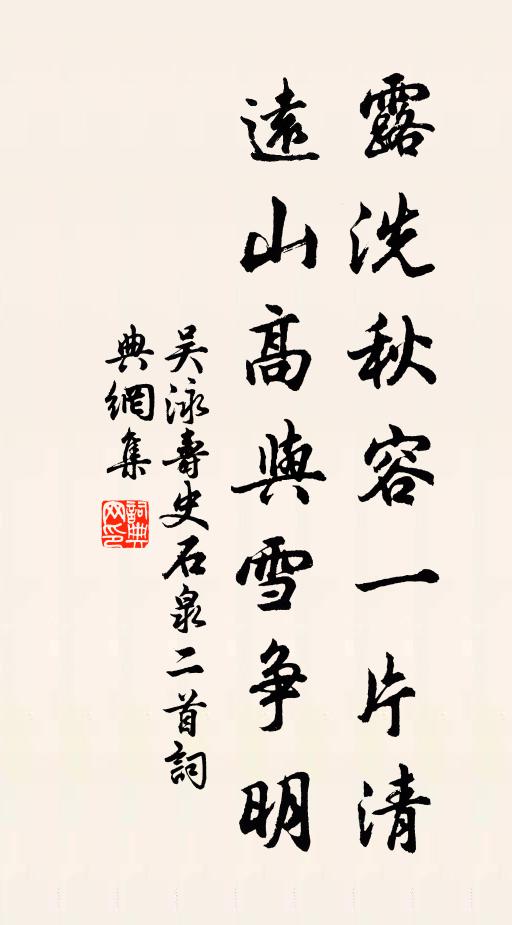 露洗秋容一片清
遠山高與雪争明
吴泳壽史石泉二首詞
典網集
詞典
网印